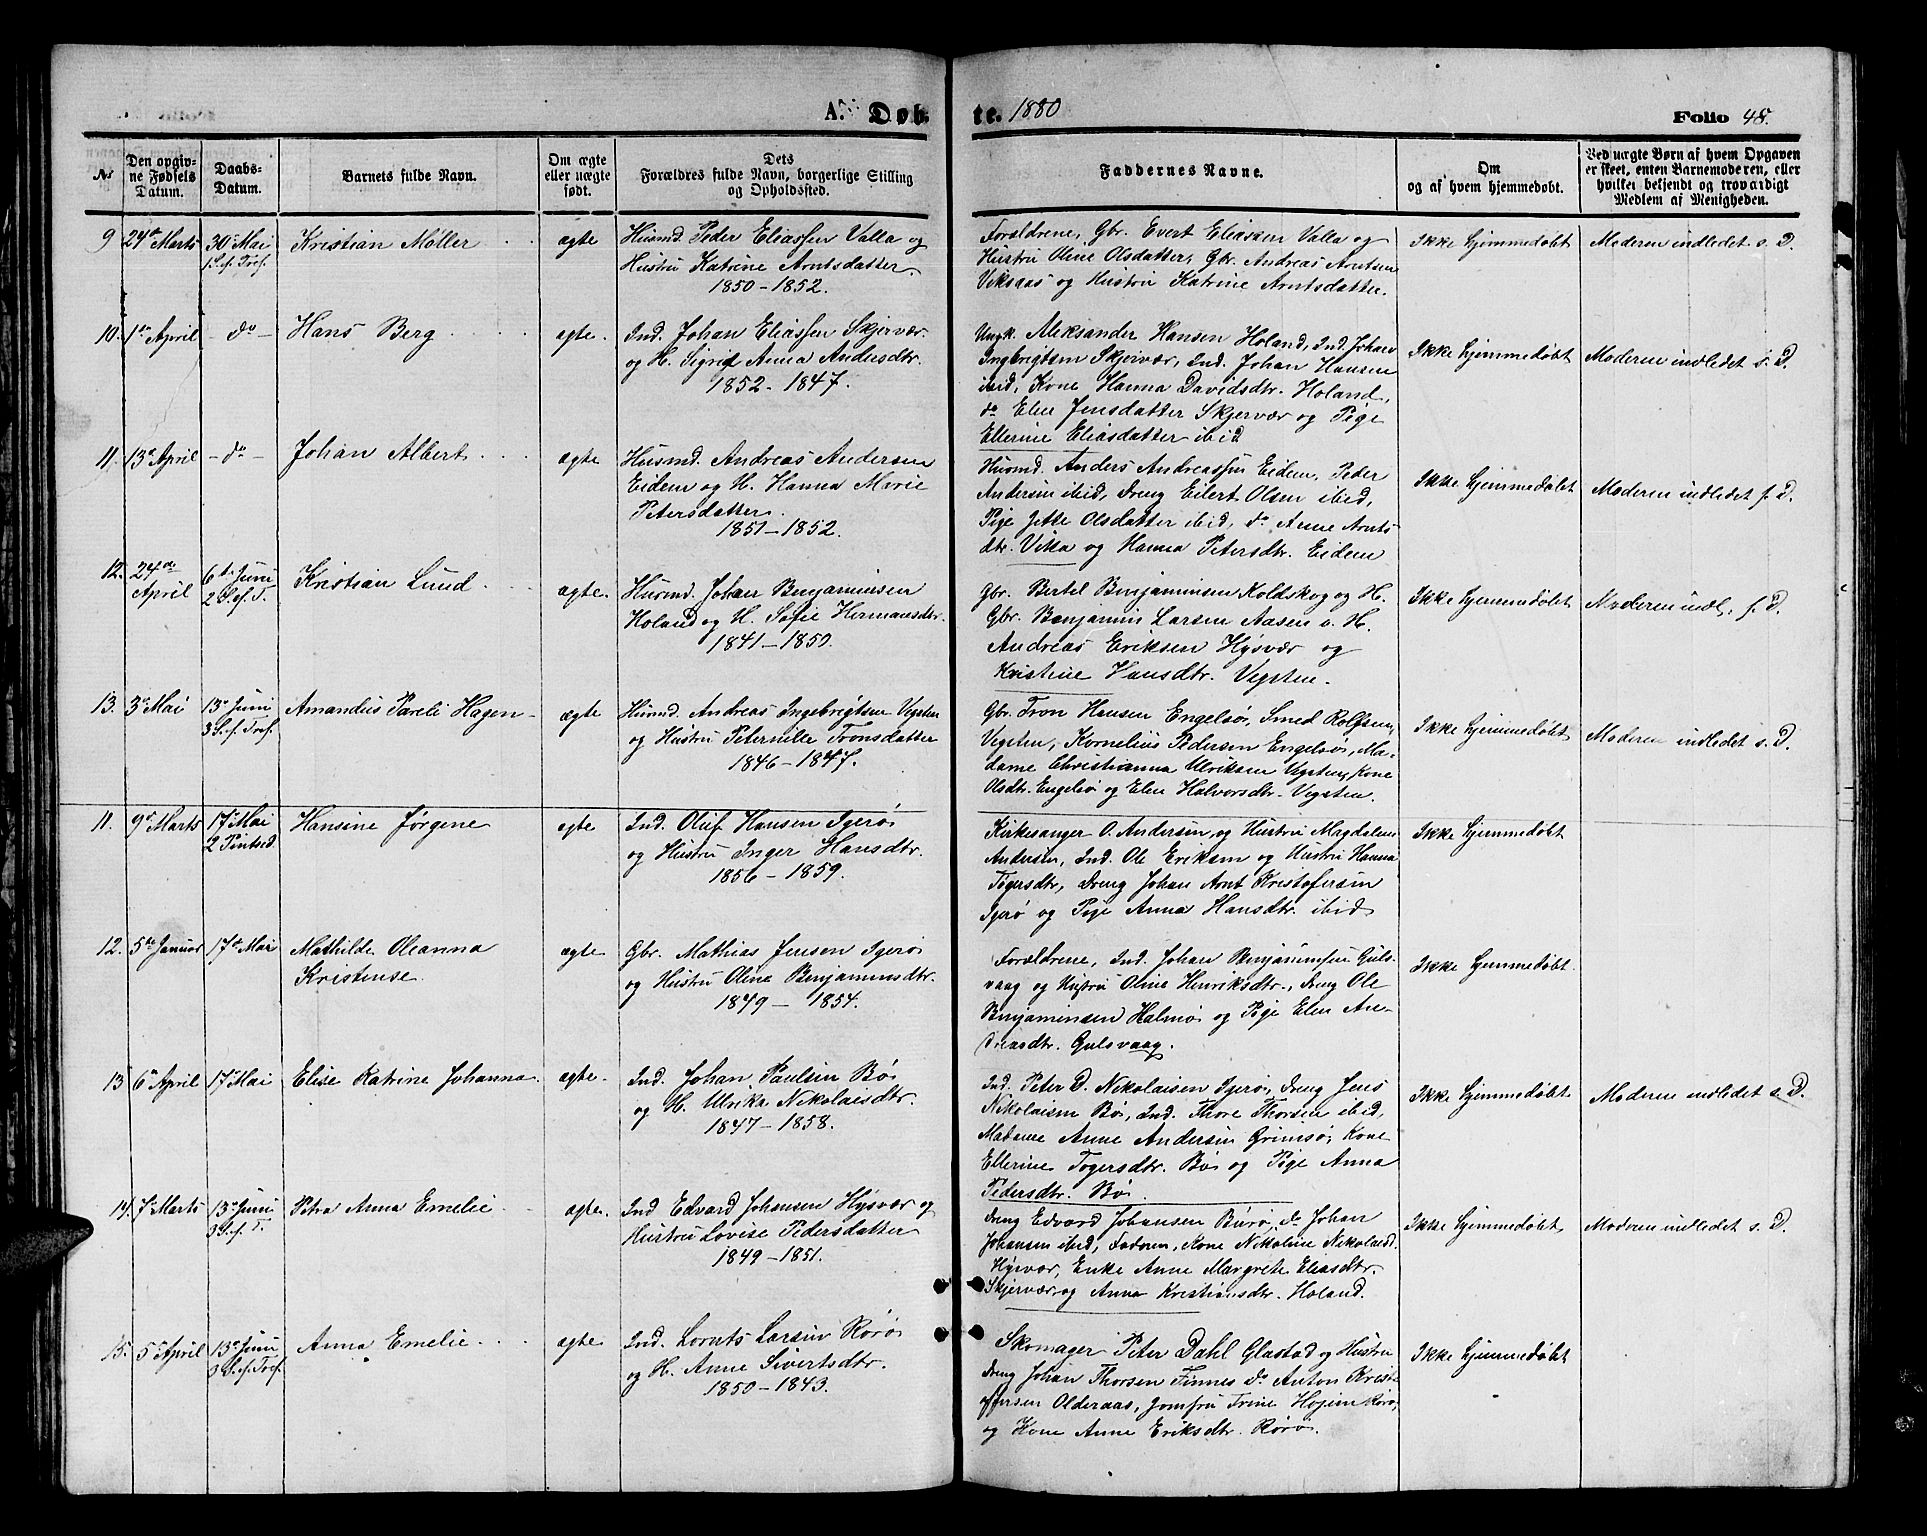 A. Døbte. 1880
Folio 48.
No
Den opgivne Fødsels Datum.
Daabs-Datum.
Barnets fulde Navn.
Om ægte eller uægte født.
Dets Forældres fulde Navn, borgerlige Stilling og Opholdssted.
Faddernes Navne.
Om og af hvem hjemmedøbt.
Ved uægte Børn af hvem Opgaven er skeet, enten Barnemoderen, eller hvilket bekjendt og troværdigt Medlem af Menigheden.
9 24de Marts 30te Mai 1 S. ef. Tref. Kristian Møller ægte
Husmd. Peder Eliassen Valla og
Hustru Katrine Arntsdatter.
1850 - 1852.
Forældrene, Gbr. Evert Eliassen Valla og
Hustru Oline Olsdatter, Gbr. Andreas Arntsen
Viksaas og Hustru Katrine Arntsdatter.
Ikke hjemmedøbt
Moderen indledet s. D.
10. 1ste April - do - Hans Berg ægte.
Ind. Johan Eliassen Skjervær
og H. Sigrid Anna Andersdtr.
1852 - 1847.
Ungk. Aleksander Hansen Holand, Ind. Johan
Ingbrigtsen Skjervær, Ind. Johan Hansen
ibid, Kone Hanna Davidsdtr. Holand,
do Elen Jensdatter Skjervær og Pige
Ellerine Eliasdatter ibid
Ikke hjemmedøbt
Moderen indledet s. D.
11. 13de April - do - Johan Albert ægte
Husmd. Andreas Andersen
Eidem og H. Hanna Marie
Petersdatter.
1851 - 1852.
Husmd. Anders Andreassen Eidem, Peder
Andersen ibid, Dreng Eilert Olsen ibid,
Pige Jette Olsdatter ibid, do Anne Arnts-
dtr. Vikka og Hanna Petersdtr. Eidem
Ikke hjemmedøbt
Moderen indledet s. D.
12. 24de April 6te Juni 2 S. ef. T. Kristian Lund ægte.
Husmd. Johan Benjaminsen
Holand og H. Sofie Hermansdtr.
1841 - 1850.
Gbr. Bertel Benjaminsen Koldskog og H.
Gbr. Benjamin Larsen Aasen o. H.
Andreas Eriksen Hysvær og
Kristine Hansdtr. Vegsten.
Ikke hjemmedøbt
Moderen indl. s. D.
13. 3de Mai 13de Juni 3 S. ef. Tref. Amandus Pareli Hagen ægte
Husmd. Andreas Ingebrigtsen Vegsten
og Hustru Peternille Tronsdatter
1846 - 1847.
Gbr. Tron Hansen Engelsø, Smed Rolfsen,
Vegsten, Kornelius Pedersen Engelsø, Ma-
dame Christianna Ulriksen Vegsten, Kone
Olsdtr. Engelsø og Elen Halvorsdtr. Vegsten.
Ikke hjemmedøbt
Moderen indledet s. D.
11. 9de Marts 17de Mai 2 Pintsed. Hansine Jørgene ægte
Ind. Oluf Hansen Igerø
og Hustru Inger Hansdtr.
1856 - 1859.
Kirkesanger O. Andersen og Hustru Magdalene
Andersen, Ind. Ole Eriksen og Hustru Hanna
Tøgersdtr, Dreng Johan Arnt Kristofersen
Igerø og Pige Anna Hansdtr. ibid
Ikke hjemmedøbt
12. 5te Januar 17de Mai Mathilde Oleanna
Kristense ægte
Gbr. Mathias Jensen Igerø
og Hustru Oline Benjaminsdtr.
1849 - 1854.
Forældrene, Ind. Johan Benjaminsen Guls-
vaag og Hustru Oline Henriksdtr., Dreng Ole
Benjaminsen Halmø og Pige Elen An-
dreasdtr. Gulsvaag.
Ikke hjemmedøbt.
13 6te April 17de Mai Elise Katrine Johanna. ægte.
Ind. Johan Paulsen Bø
og H. Ulrika Nikolaisdtr.
1847 - 1858.
Ind. Peter D. Nikolaisen Igerø, Dreng Jens
Nikolaisen Bø, Ind. Thore Thorsen ibid,
Madame Anne Andersen Grimsø, Kone
Ellerine Tøgersdtr. Bø og Pige Anna
Pedersdtr. Bø.
Ikke hjemmedøbt
Moderen indledet s. D.
14. 7de Marts 13de Juni 3 S. ef. T. Petra Anna Emelie ægte.
Ind Edvard Johansen Hysvær og
Hustru Lovise Pedersdatter
1849 - 1851.
Dreng Edvard Johansen Burø, do Johan
Johansen ibid, Faderen, Kone Nikoline Nikolaisd.
Hysvær, Enke Anne Margrete Eliasdtr.
Skjervær og Anna Kristiansdtr. Holand.
Ikke hjemmedøbt
Moderen indledet s. D.
15. 5te April 13de Juni 3 S. ef. Tref. Anna Emelie ægte
Ind. Lornts Larsen Rørø
og H. Anne Sivertsdtr.
1850 - 1843.
Skomager Peter Dahl Glastad og Hustru
Dreng Johan Thorsen Finnes do Anton Krist-
offersen Olderaas, Jomfru Trine Høiem Rørø,
og Kone Anne Eriksdtr. Rørø.
Ikke hjemmedøbt